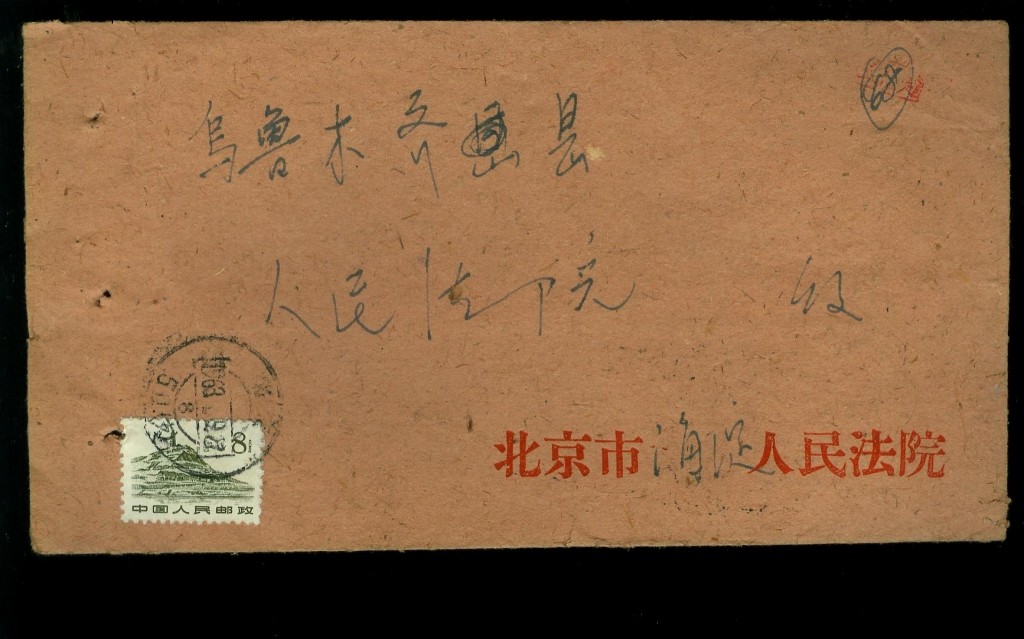 68
乌鲁木齐县
人民法院 收
北京市海淀人民法院
8
中国人民邮政